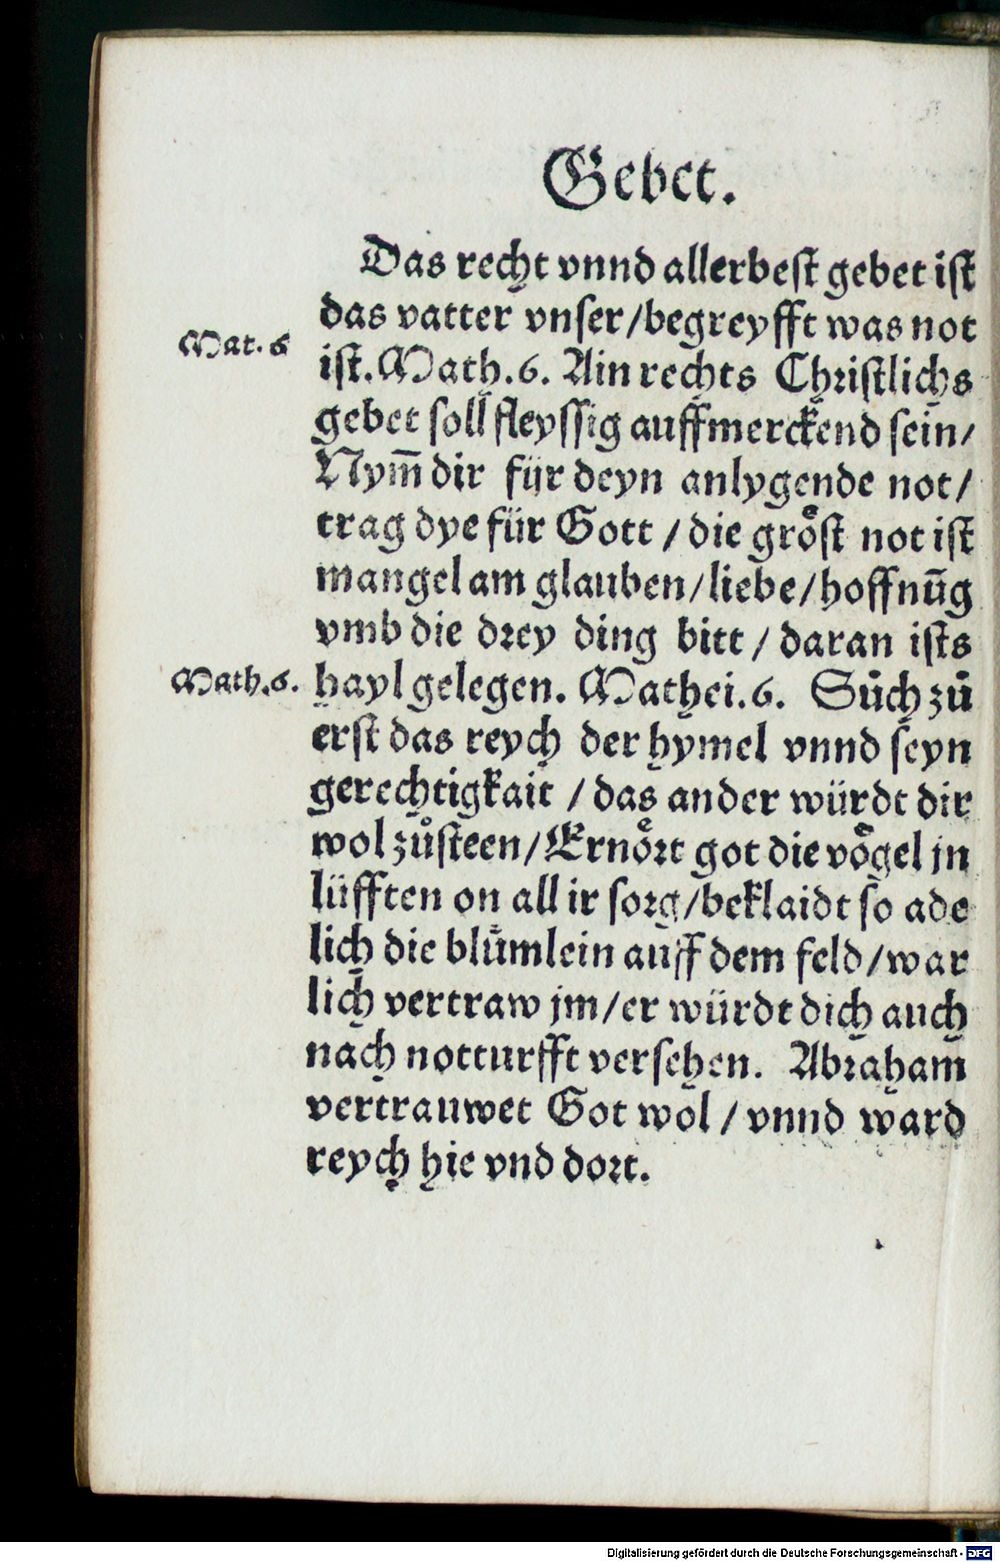 Gebet.
Das recht vnnd allerbest gebet ist
das vatter vnser/begreyfft was not
Mat. 6
ist. Math. 6. Ain rechts Christlichs
gebet soll fleyssig auffmerckend sein/
Nym̄ dir für deyn anlygende not/
trag dye für Gott / die groͤst not ist
mangel am glauben/liebe/hoffnūg
vmb die drey ding bitt / daran ists
Math. 6.
hayl gelegen. Mathei. 6. Suͤch zuͦ
erst das reych der hymel vnnd seyn
gerechtigkait / das ander würdt dir
wol zuͦsteen/Ernoͤrt got die voͤgel jn
lüfften on all ir sorg/beklaidt so ade
lich die bluͤmlein auff dem feld/war
lich vertraw jm/er würdt dich auch
nach notturfft versehen. Abraham
vertrauwet Got wol / vnnd ward
reych hie vnd dort.
Digitalisierung gefördert durch die Deutsche Forschungsgemeinschaft - DFG